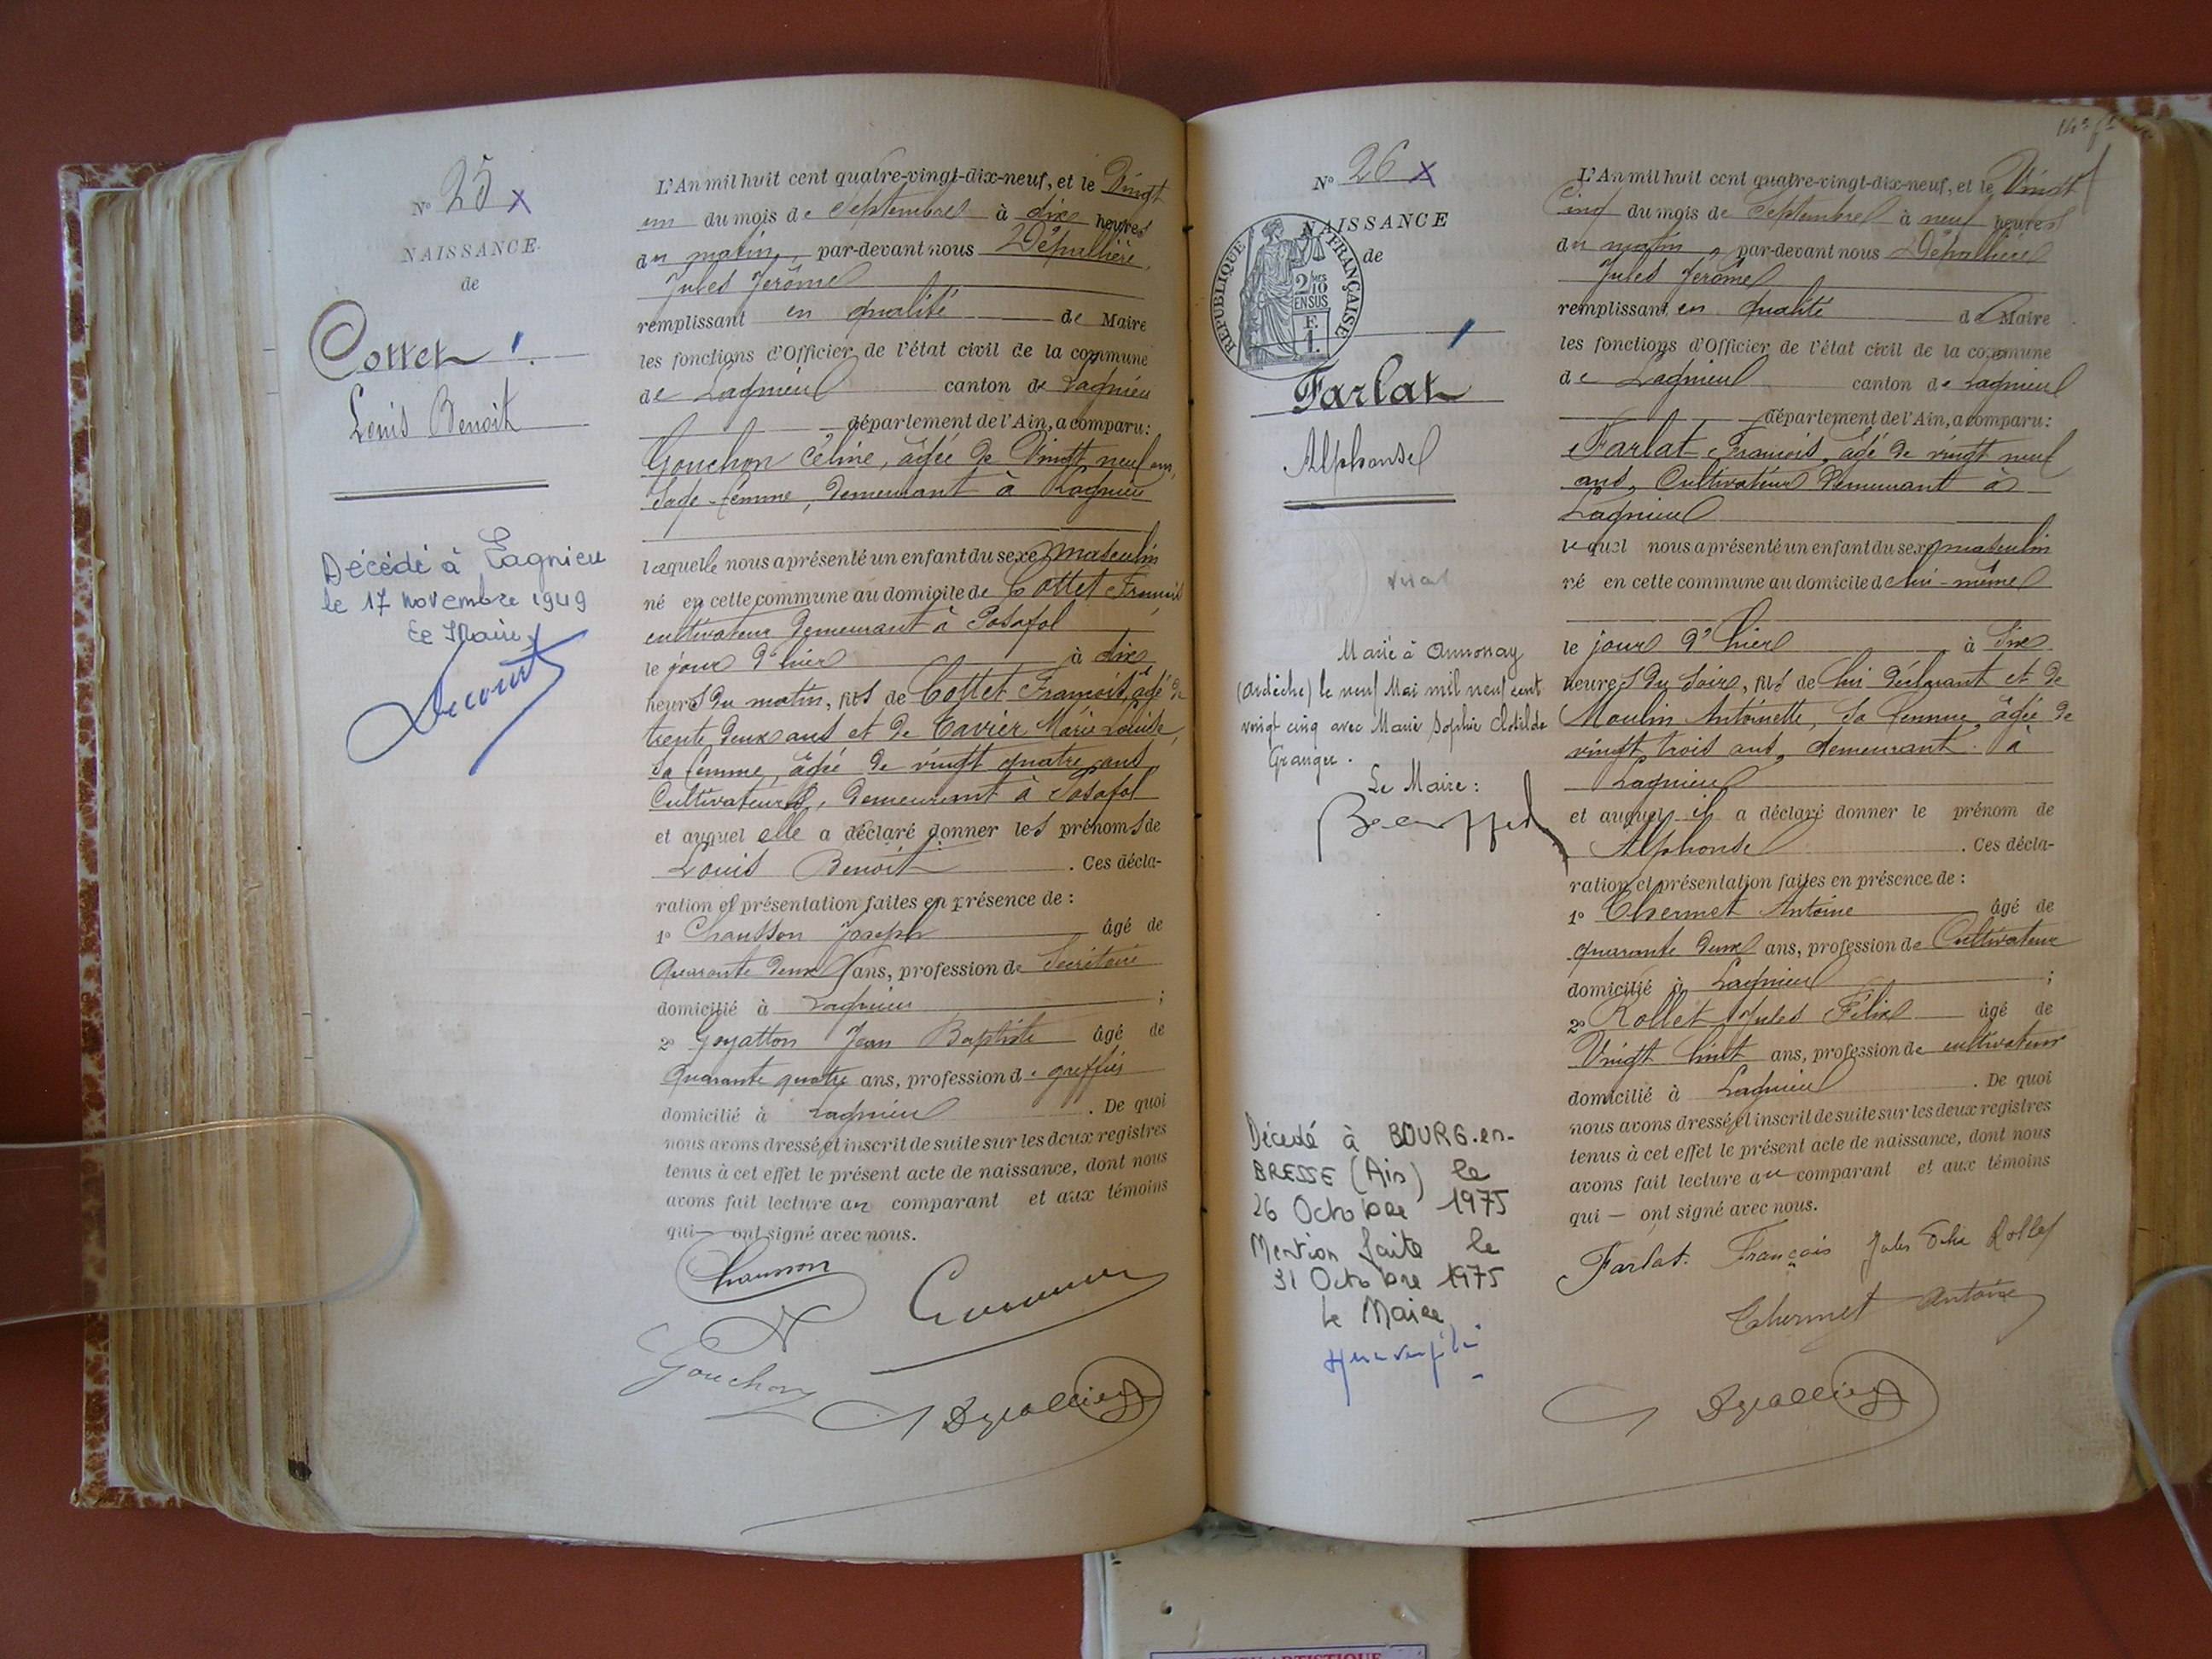 N° 25 x
NAISSANCE
de
Cottet
Louis Benoit
Décédé à Lagnieu
le 17 Novembre 1949
Le Maire
Lecourt
L'An mil huit cent quatre-vingt-dix-neuf, et le Vingt
un du mois de Septembre à dix heures
du matin, par-devant nous Dépallière
Jules Jérôme
remplissant en qualité de Maire
les fonctions d'Officier de l'état civil de la commune
de Lagnieu canton de Lagnieu
département de l'Ain, a comparu:
Gouchon Céline, âgée de Vingt neuf ans,
Sage-femme, demeurant à Lagnieu
laquelle nous a présenté un enfant du sexe masculin
né en cette commune au domicile de Cottet François
cultivateur demeurant à Posafol
le jour d'hier à dix
heures du matin, fils de Cottet François, âgé de
trente deux ans et de Cavier Marie Louise,
sa femme, âgée de vingt quatre ans
Cultivateurs, demeurant à Posafol
et auquel elle a déclaré donner les prénoms de
Louis Benoit. Ces décla-
ration et présentation faites en présence de :
1° Chausson Joseph âgé de
Quarante deux ans, profession de Secrétaire
domicilié à Lagnieu ;
2° Goyatton Jean Baptiste âgé de
Quarante quatre ans, profession de greffier
domicilié à Lagnieu. De quoi
nous avons dressé et inscrit de suite sur les deux registres
tenus à cet effet le présent acte de naissance, dont nous
avons fait lecture au comparant et aux témoins
qui — ont signé avec nous.
Chausson
Gouchon
N° 26 x
NAISSANCE
de
REPUBLIQUE FRANÇAISE
2/10
EN SUS
Farlat
Alphonse
Marié à Annonay
(Ardèche) le neuf Mai mil neuf cent
vingt cinq avec Marie Sophie Clotilde
Granger.
Le Maire :
Décédé à BOURG-en-
BRESSE (Ain) le
26 Octobre 1975
Mention faite le
31 Octobre 1975
Le Maire
L'An mil huit cent quatre-vingt-dix-neuf, et le Vingt
Cinq du mois de Septembre à neuf heures
du matin, par-devant nous Dépallière
Jules Jérôme
remplissant en qualité de Maire
les fonctions d'Officier de l'état civil de la commune
de Lagnieu canton de Lagnieu
département de l'Ain, a comparu:
Farlat François, âgé de vingt neuf
ans, Cultivateur demeurant à
Lagnieu
lequel nous a présenté un enfant du sexe masculin
né en cette commune au domicile de lui-même
le jour d'hier à dix
heures du soir, fils de lui déclarant et de
Moulin Antoinette, sa femme, âgée de
vingt trois ans, demeurant à
Lagnieu
et auquel il a déclaré donner le prénom de
Alphonse. Ces décla-
ration et présentation faites en présence de :
1° Thermet Antoine âgé de
quarante deux ans, profession de Cultivateur
domicilié à Lagnieu ;
2° Rollet Jules Félix âgé de
Vingt huit ans, profession de cultivateur
domicilié à Lagnieu. De quoi
nous avons dressé et inscrit de suite sur les deux registres
tenus à cet effet le présent acte de naissance, dont nous
avons fait lecture au comparant et aux témoins
qui — ont signé avec nous.
Farlat François Jules Félix Rollet
Thermet Antoine